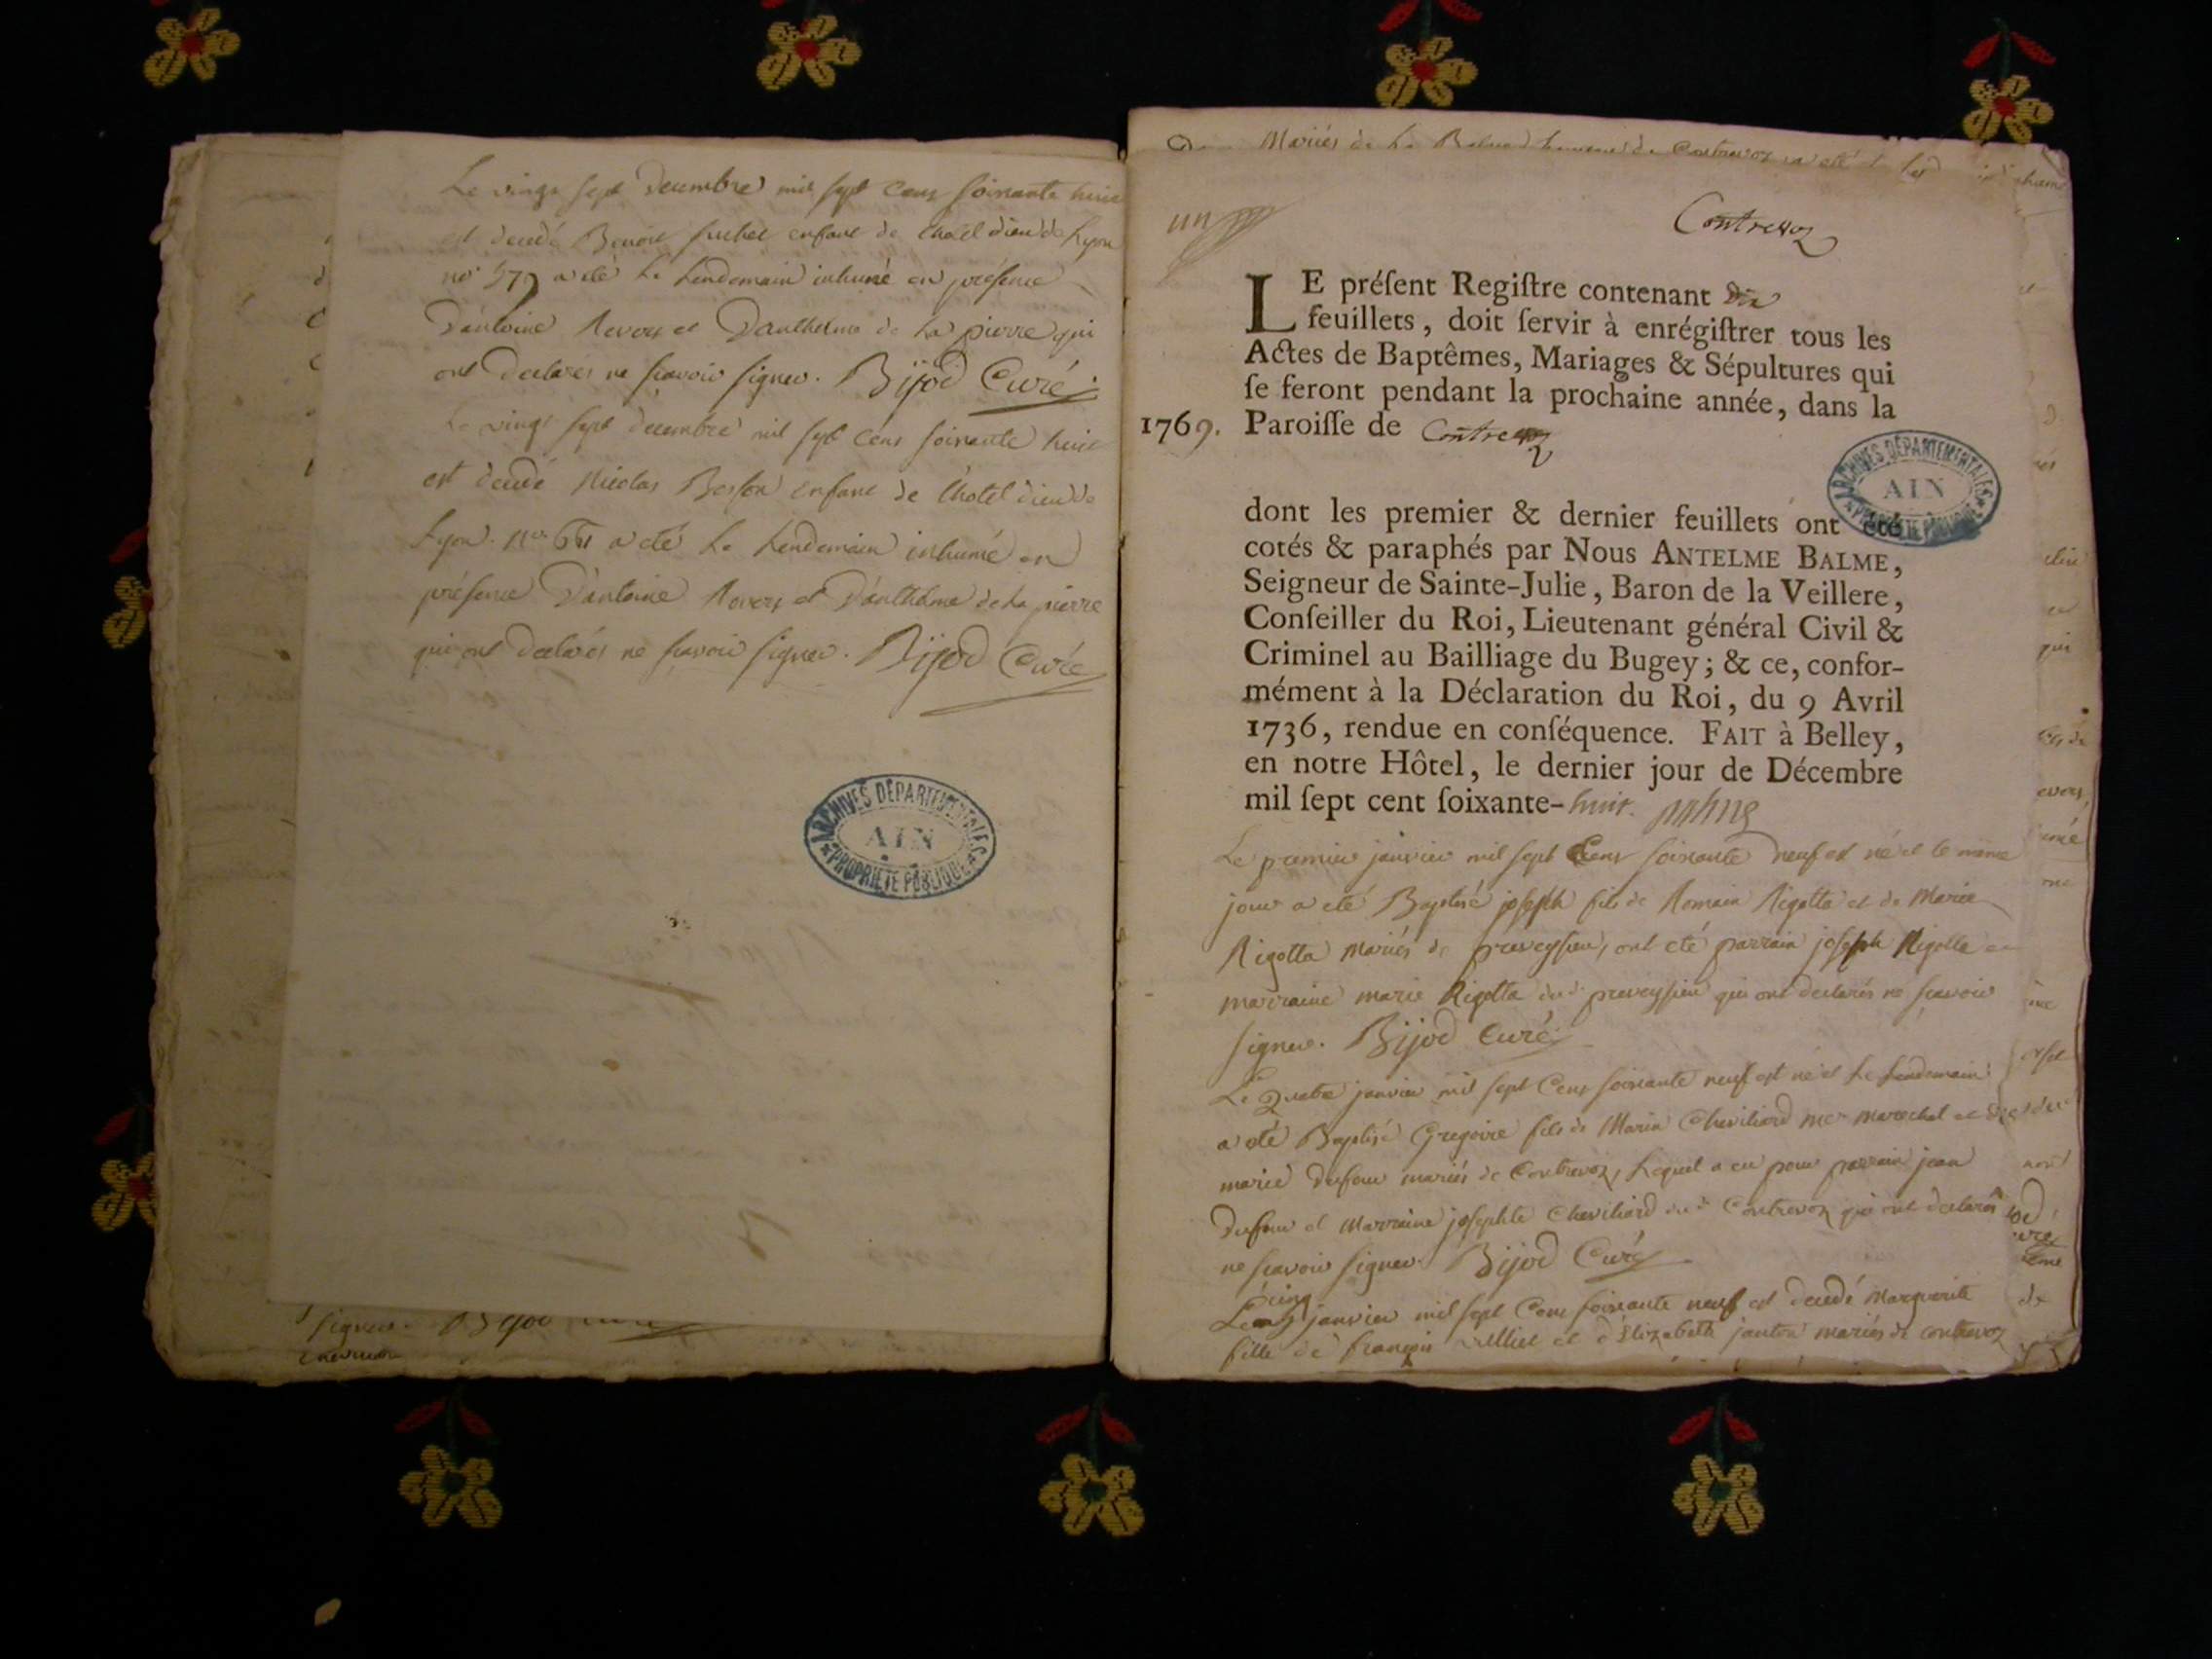 Le vingt sept decembre mil sept cens soixante huit
est decedé Benoit suchet enfant de l'hotel dieu de Lyon
no 579 a eté le Lendemain inhumé en présence
D'antoine Revers et D'anthelme de La pierre qui
ont declarés ne scavoir signer. Bijod Curé
Le vingt sept decembre mil sept cens soixante huit
est decedé Nicolas Besson enfant de l'hotel dieu de
Lyon. no a eté le Lendemain inhumé en
présence D'antoine Revers et D'anthelme de La pierre
qui ont declarés ne scavoir signer. Bijod Curé
ARCHIVES DÉPARTEMENTALES
AIN
PROPRIÉTÉ PUBLIQUE
signer. Bijod curé
Mariés de La Balme hameau de Contrevoz a eté
un
Contrevoz
LE préſent Regiſtre contenant dix
feuillets, doit ſervir à enrégiſtrer tous les
Actes de Baptêmes, Mariages & Sépultures qui
ſe feront pendant la prochaine année, dans la
1769. Paroiſſe de Contrevoz
ARCHIVES DÉPARTEMENTALES
AIN
PROPRIÉTÉ PUBLIQUE
dont les premier & dernier feuillets ont été
cotés & paraphés par Nous ANTELME BALME,
Seigneur de Sainte-Julie, Baron de la Veillere,
Conſeiller du Roi, Lieutenant général Civil &
Criminel au Bailliage du Bugey; & ce, confor-
mément à la Déclaration du Roi, du 9 Avril
1736, rendue en conſéquence. FAIT à Belley,
en notre Hôtel, le dernier jour de Décembre
mil ſept cent ſoixante-huit. Balme
Le premier janvier mil sept Cens soixante neuf est né et le meme
jour a eté Baptisé joseph fils de Romain Rigotta et de Marie
Rigotta mariés de preveyssieu, ont eté parrain joseph Rigolle et
marraine marie Rigotta dud. preveyssieu qui ont declarés ne scavoir
signer. Bijod Curé
Le Quatre janvier mil sept Cens soixante neuf est né et le Lendemain
a eté Baptisé Gregoire fils de Marin Cheviliard me marechal et de
marie Dufour mariés de Contrevoz, Lequel a eu pour parrain jean
Dufour et Marraine josephte Cheviliard dud. Contrevoz qui ont declarés
ne scavoir signer Bijod Curé
Le cinq janvier mil sept Cens soixante neuf est decedé Marguerite
fille de françois et d'Elizabeth janton mariés de contrevoz